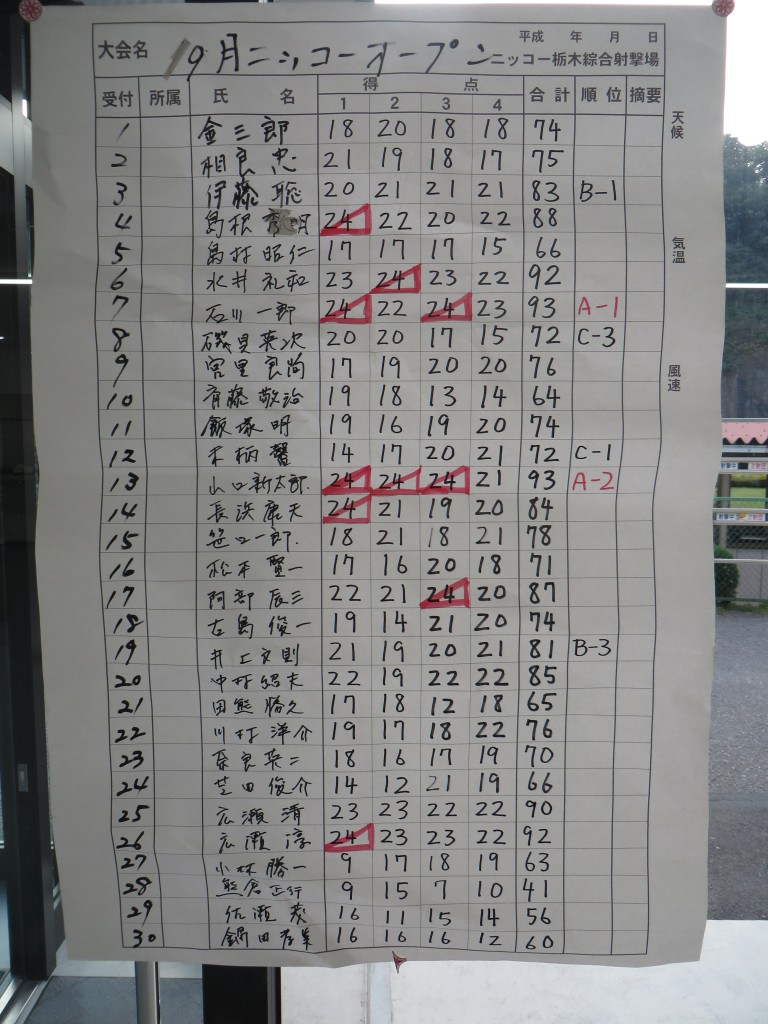 平成 年 月 日
大会名 9月ニッコーオープン ニッコー栃木綜合射撃場
受付 所属 氏 名 得 点 合計 順位 摘要
1 2 3 4
天候
気温
風速
1 金三郎 18 20 18 18 74
2 相良 忠 21 19 18 17 75
3 伊藤 聡 20 21 21 21 83 B-1
4 島根 明 24 22 20 22 88
5 島村 昭仁 17 17 17 15 66
6 水井 礼和 23 24 23 22 92
7 石川 一郎 24 22 24 23 93 A-1
8 磯貝 英次 20 20 17 15 72 C-3
9 宮里 良尚 17 19 20 20 76
10 斉藤 敬治 19 18 13 14 64
11 飯塚 明 19 16 19 20 74
12 木柄 馨 14 17 20 21 72 C-1
13 山口新太郎 24 24 24 21 93 A-2
14 長浜 康夫 24 21 19 20 84
15 笹口一郎 18 21 18 21 78
16 松本 賢一 17 16 20 18 71
17 阿部 辰三 22 21 24 20 87
18 古島 俊一 19 14 21 20 74
19 井上文則 21 19 20 21 81 B-3
20 中村紹夫 22 19 22 22 85
21 田熊 勝久 17 18 12 18 65
22 川村 洋介 19 17 18 22 76
23 奈良英二 18 16 17 19 70
24 芝田 俊介 14 12 21 19 66
25 広瀬 清 23 23 22 22 90
26 広瀬 淳 24 23 23 22 92
27 小林 勝一 9 17 18 19 63
28 熊倉 正行 9 15 7 10 41
29 佐瀬 茂 16 11 15 14 56
30 鍋田 16 16 16 12 60